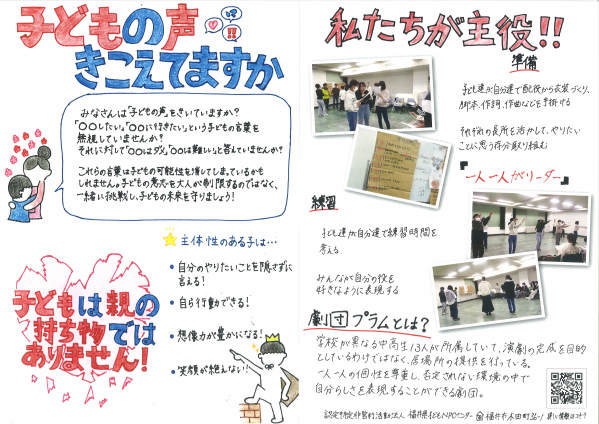 子どもの声
きこえてますか
!!
みなさんは「子どもの声」をきいていますか?
「〇〇したい」「〇〇に行きたい」という子どもの言葉を
無視していませんか?
それに対して「〇〇はダメ」「〇〇は難しい」と答えていませんか?
これらの言葉は子どもの可能性を消してしまっているかも
しれません。子どもの意志を大人が制限するのではなく、
一緒に挑戦し、子どもの未来を守りましょう!
主体性のある子は…
・自分のやりたいことを隠さずに
言える!
・自ら行動できる!
・想像力が豊かになる!
・笑顔が絶えない!
子どもは親の
持ち物では
ありません!
私たちが主役!!
準備
子ども達が自分達で配役から衣装づくり、
脚本、作詞、作曲などを手掛ける
それぞれの長所を活かして、やりたい
ことに思う存分取り組む
一人一人がリーダー
練習
子ども達が自分達で練習時間を
考える
みんなが自分の役を
好きなように表現する
劇団プラムとは?
学校が異なる中高生13人が所属していて、演劇の完成を目的
としているわけではなく、居場所の提供を行っている。
一人一人の個性を尊重し、否定されない環境の中で
自分らしさを表現することができる劇団。
認定特定非営利活動法人 福井県子どもNPOセンター 福井市木田町36-1 詳しい情報はコチラ